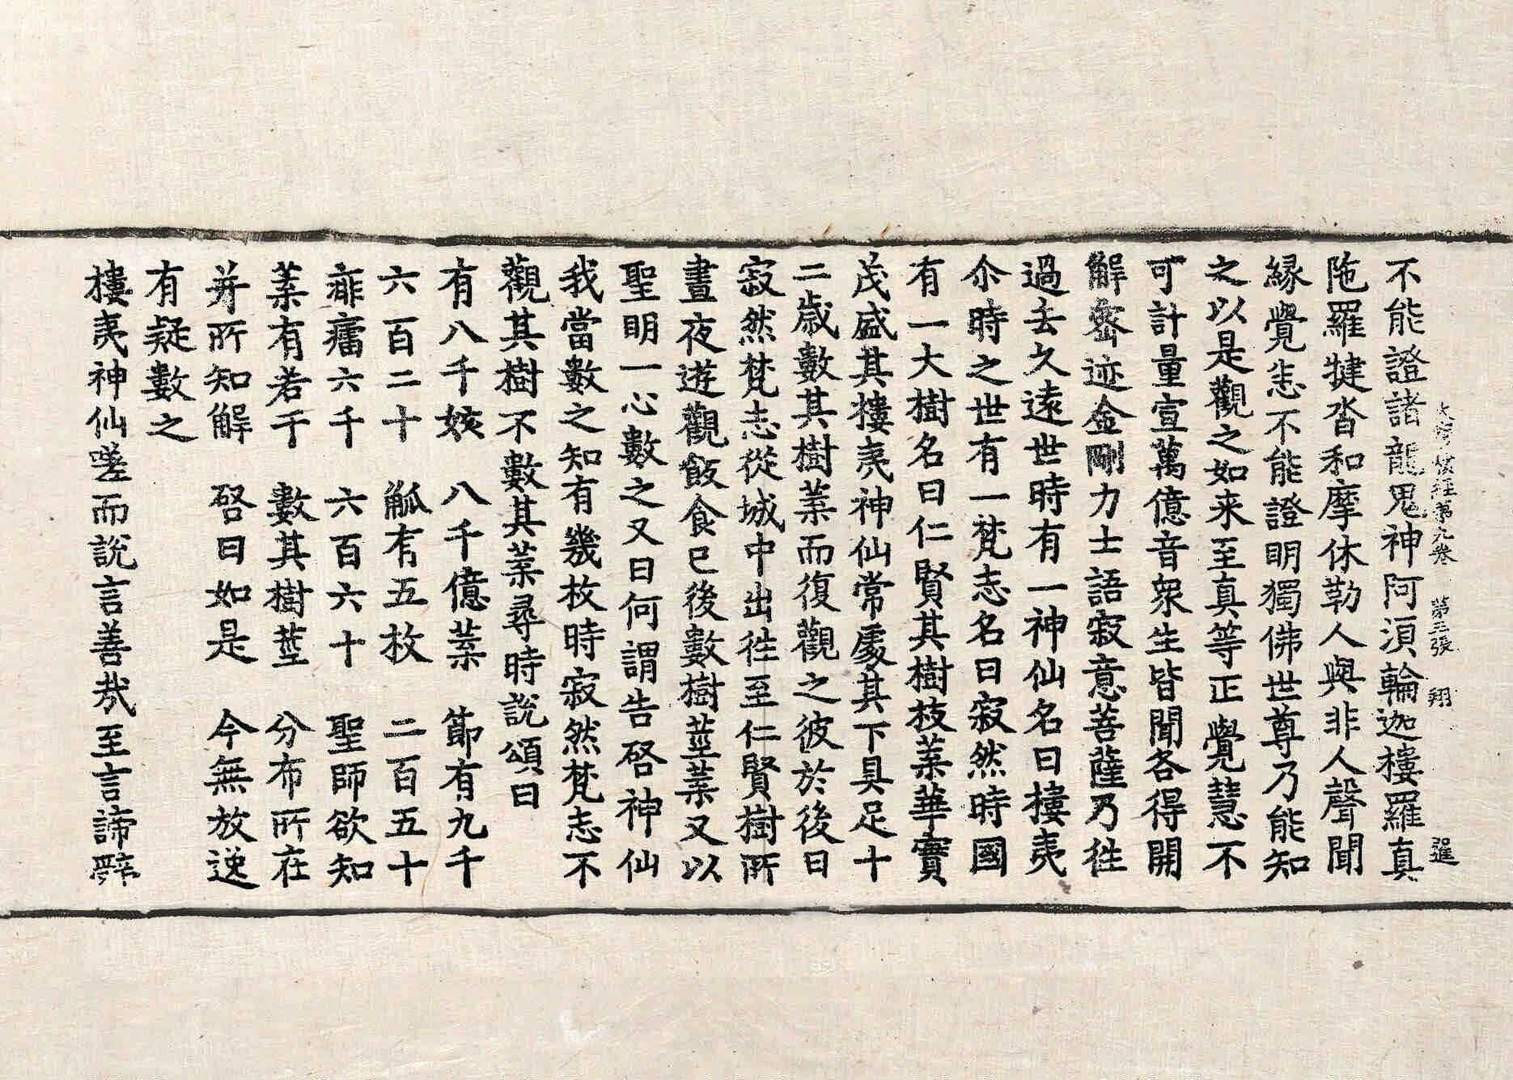 大寶積經第九卷 第三張 翔
選
不能證諸龍鬼神阿須輪迦樓羅真
陁羅犍沓和摩休勒人與非人聲聞
緣覺恙不能證明獨佛世尊乃能知
之以是觀之如来至真等正覺慧不
可計量宣萬億音衆生皆聞各得開
解密迹金剛力士語寂意菩薩乃徃
過去久遠世時有一神仙名曰樓夷
尒時之世有一梵志名曰寂然時國
有一大樹名曰仁賢其樹枝葉華實
茂盛其樓夷神仙常處其下具足十
二歲數其樹葉而復觀之彼於後日
寂然梵志從城中出徃至仁賢樹所
晝夜遊觀飯食已後數樹莖葉又以
聖明一心數之又曰何謂告啓神仙
我當數之知有幾枚時寂然梵志不
觀其樹不數其葉尋時說頌曰
有八千姟 八千億葉 節有九千
六百二十 觚有五枚 二百五十
痱癗六千 六百六十 聖師欲知
葉有若干 數其樹莖 分布所在
并所知解 啓曰如是 今無放逸
有疑數之
樓夷神仙嗟而說言善哉至言諦辭